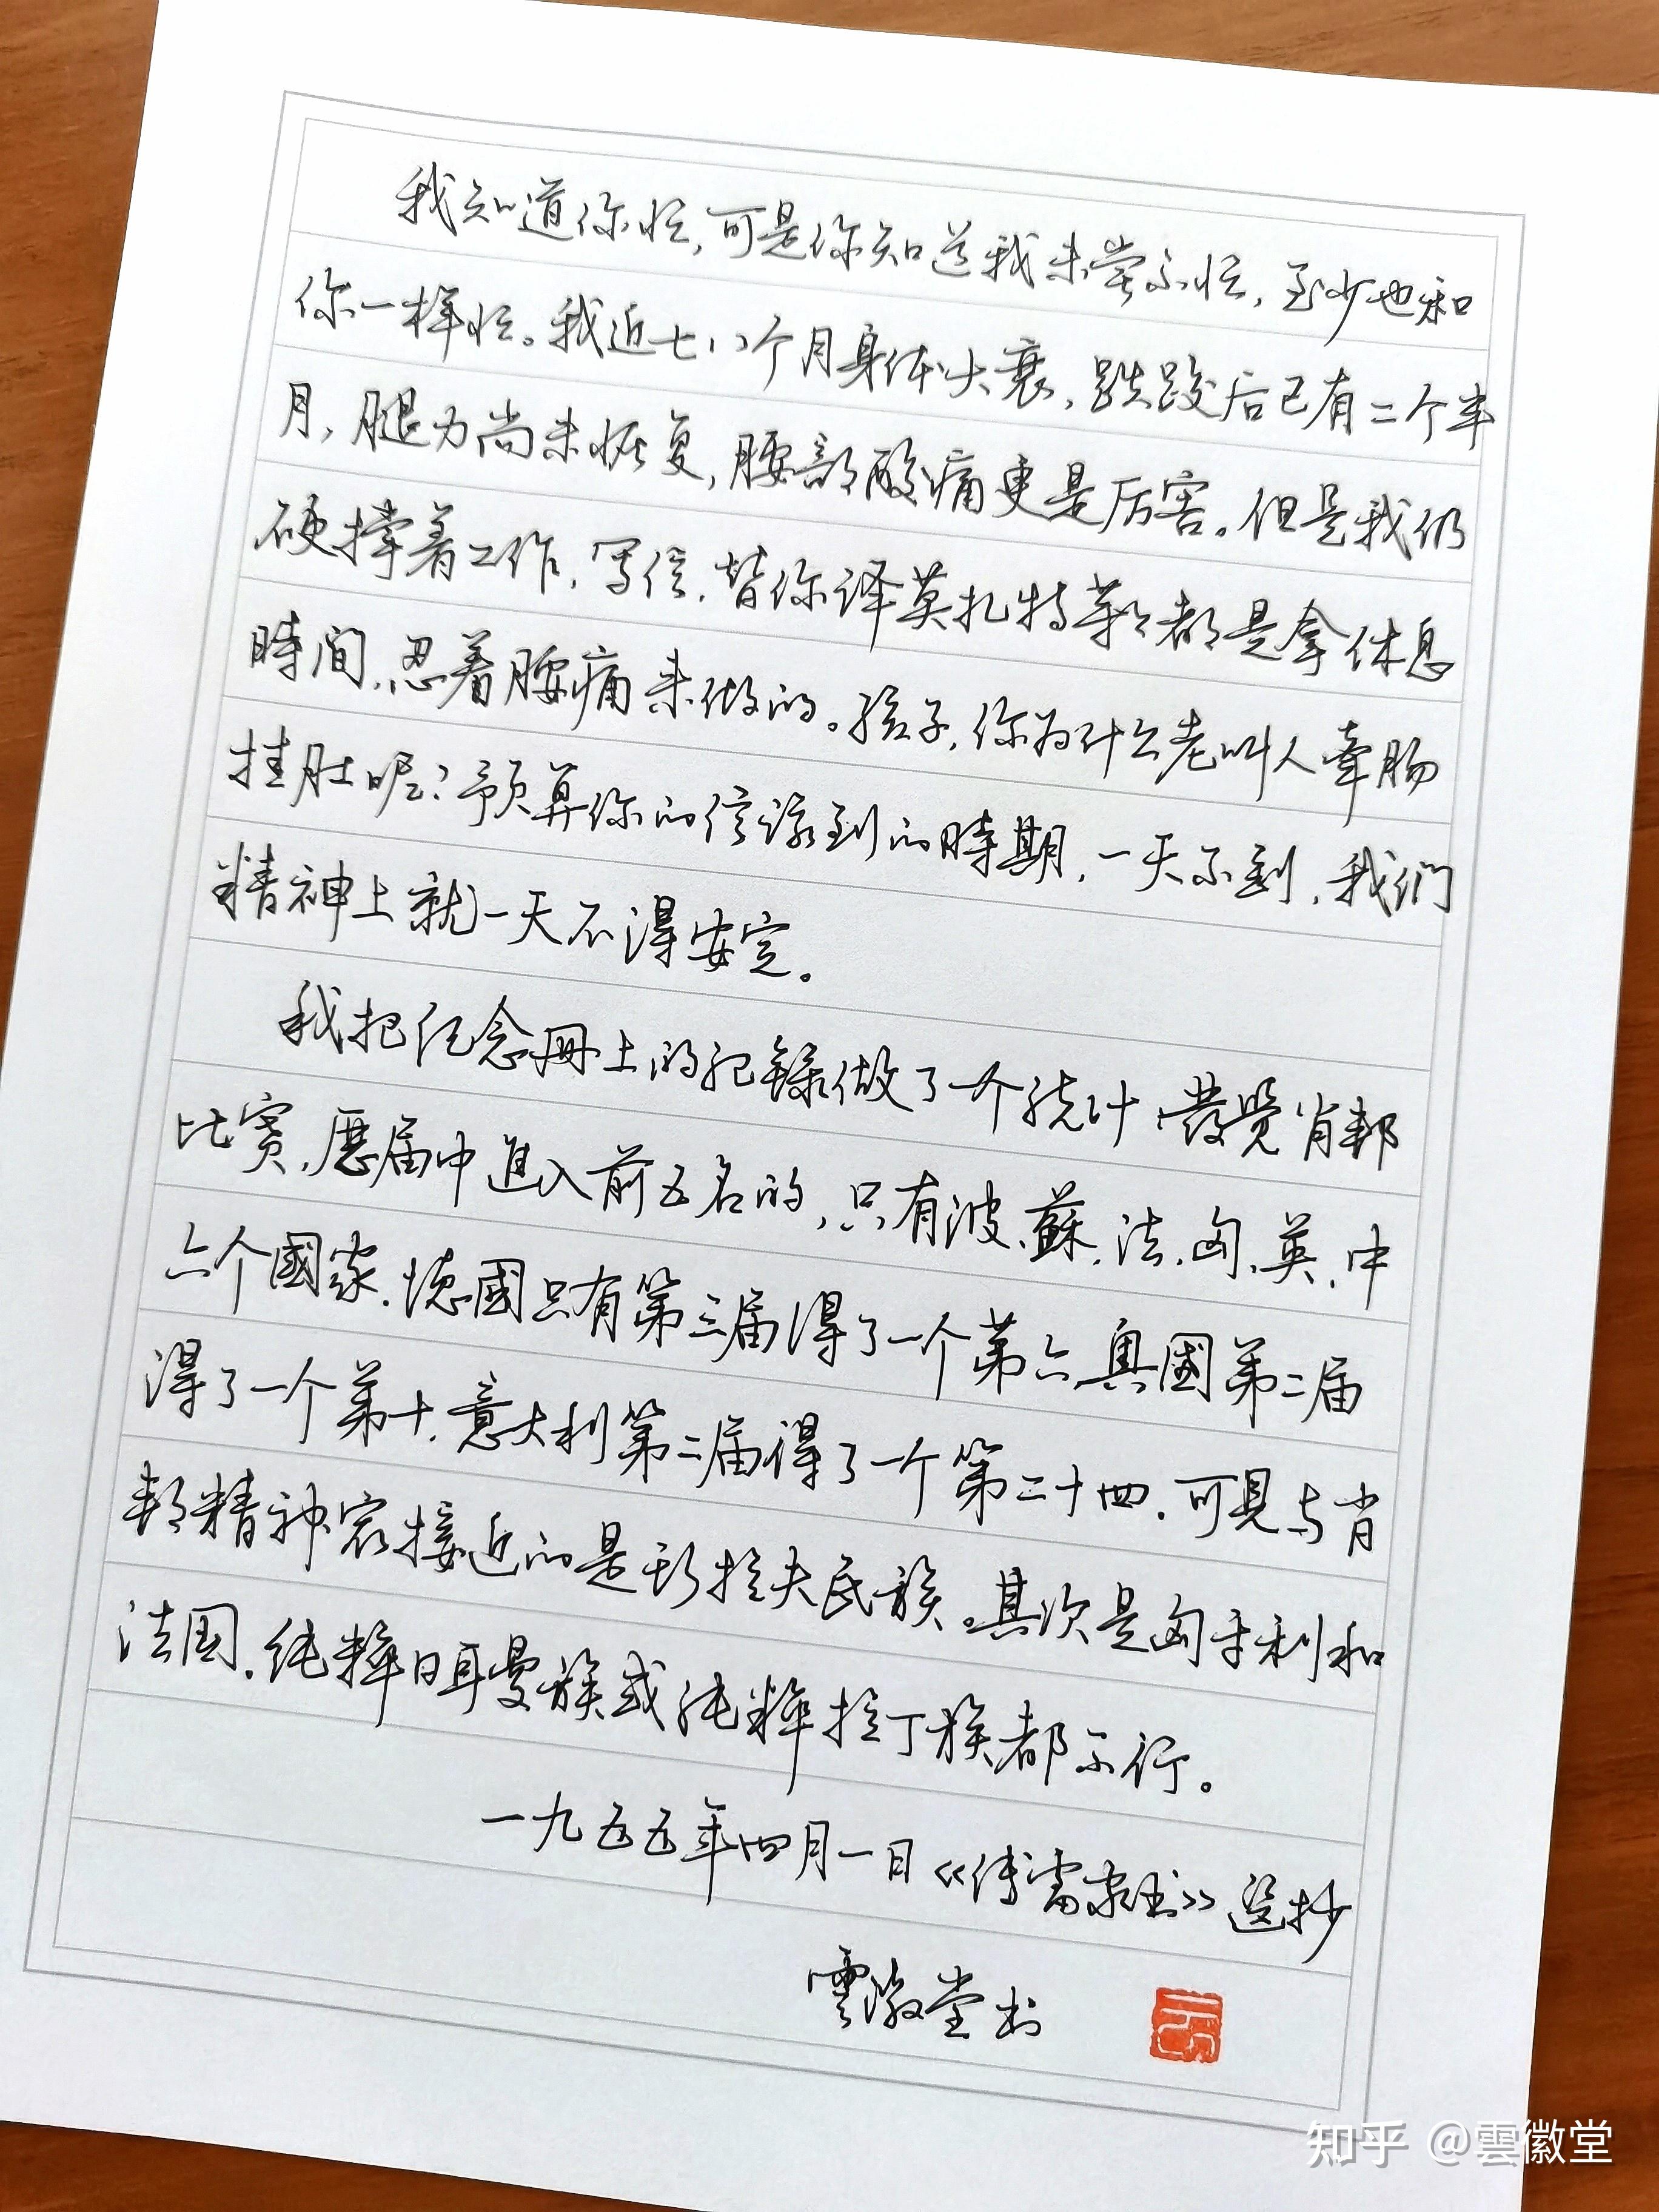 我知道你忙,可是你知道我未尝不忙,至少也和
你一样忙。我近七八个月身体大衰,跌跤后已有二个半
月,腿力尚未恢复,腰部酸痛更是厉害。但是我仍
硬撑着工作,写信,替你译莫扎特等都是拿休息
時间,忍着腰痛来做的。孩子,你为什么老叫人牵肠
挂肚呢?预算你的信该到的時期,一天不到,我们
精神上就一天不得安定。
我把纪念冊上的记錄做了一个统计,發觉肖邦
比赛,歷届中進入前五名的,只有波、蘇、法、匈、英、中
六个國家,德國只有第三届得了一个第六,奥國第二届
得了一个第十,意大利第二届得了一个第二十四。可見与肖
邦精神最接近的是斯拉夫民族。其次是匈牙利和
法国。纯粹日耳曼族或纯粹拉丁族都不行。
一九五五年四月一日《傅雷家书》選抄
雲徽堂书
知乎 @雲徽堂